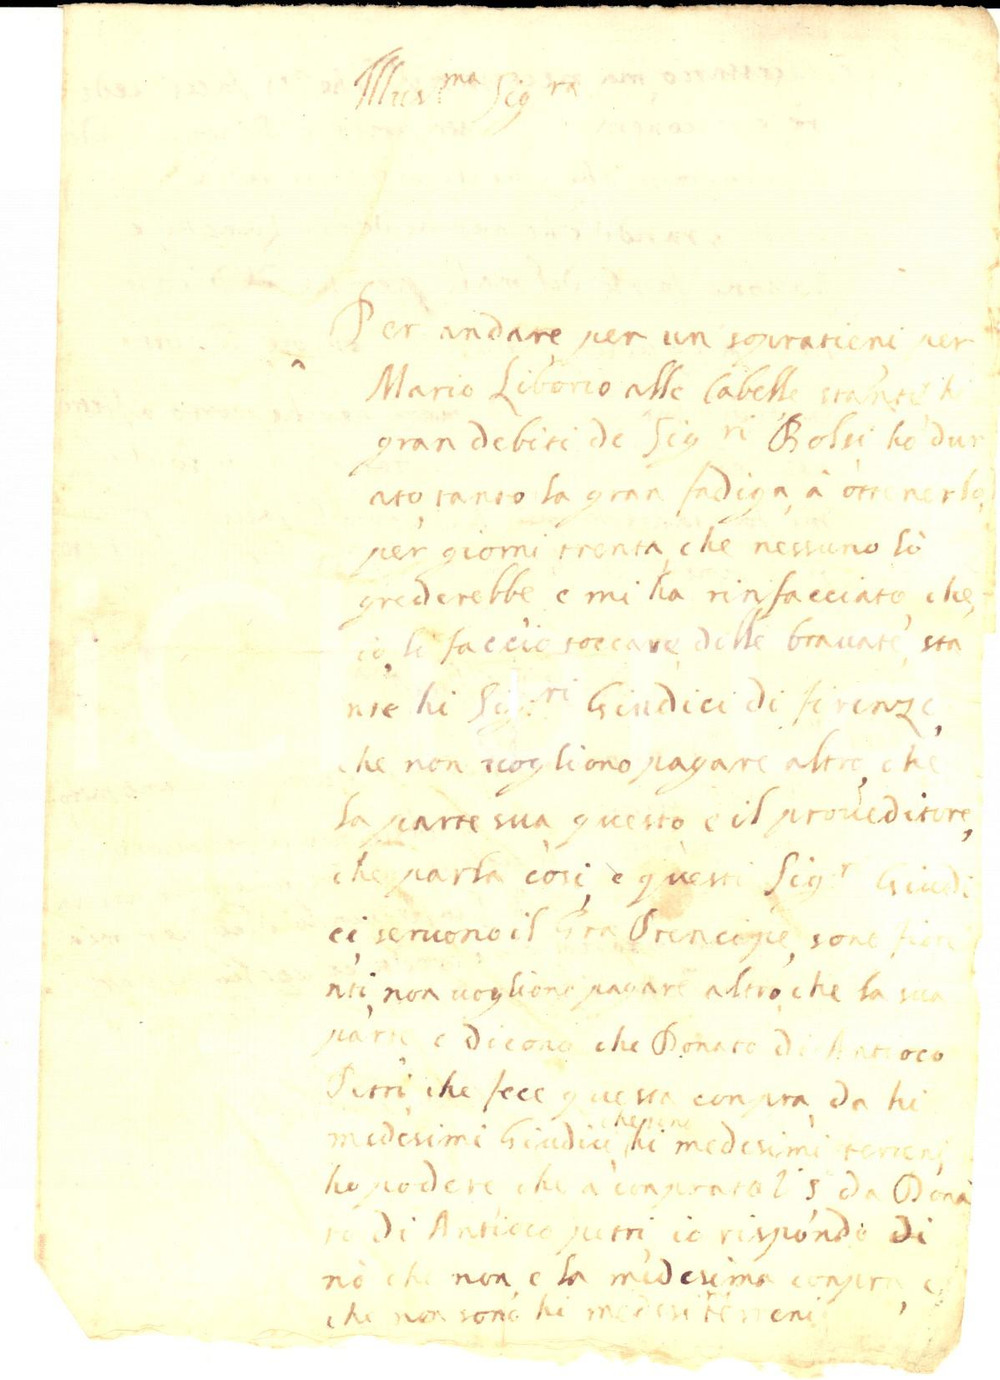 Illus.ma Sig.ra
Per andare per un sopratieni per
Mario Liborio alle Gabelle stante hi
gran debiti de Sig.ri Bolsi hò dur
ato, tanto la gran fadiga, à ottenerlo
per giorni trenta, che nessuno lò
grederebbe e mi ha rinfacciato, che
io, li faccio toccare delle bravate, sta
nte hi Sig.ri Giudici di firenze,
che non vogliono pagare altro, che
la parte sua questo e il proveditore,
che parla così, e questi Sig.r Giudi
ci, servono il Gra Prencipe, sono fiore
nti, non vogliono pagare altro, che la sua
parte e dicono che Donato di Antioco
Pitri che fece questa conpra, da hi
medesimi Giudici, hi medesimi terreni
ho podere che a conprato da Dona
to di Antioco pitri io rispondo di
nò che non e la medesima conpra, e
che non sono hi medesi terreni